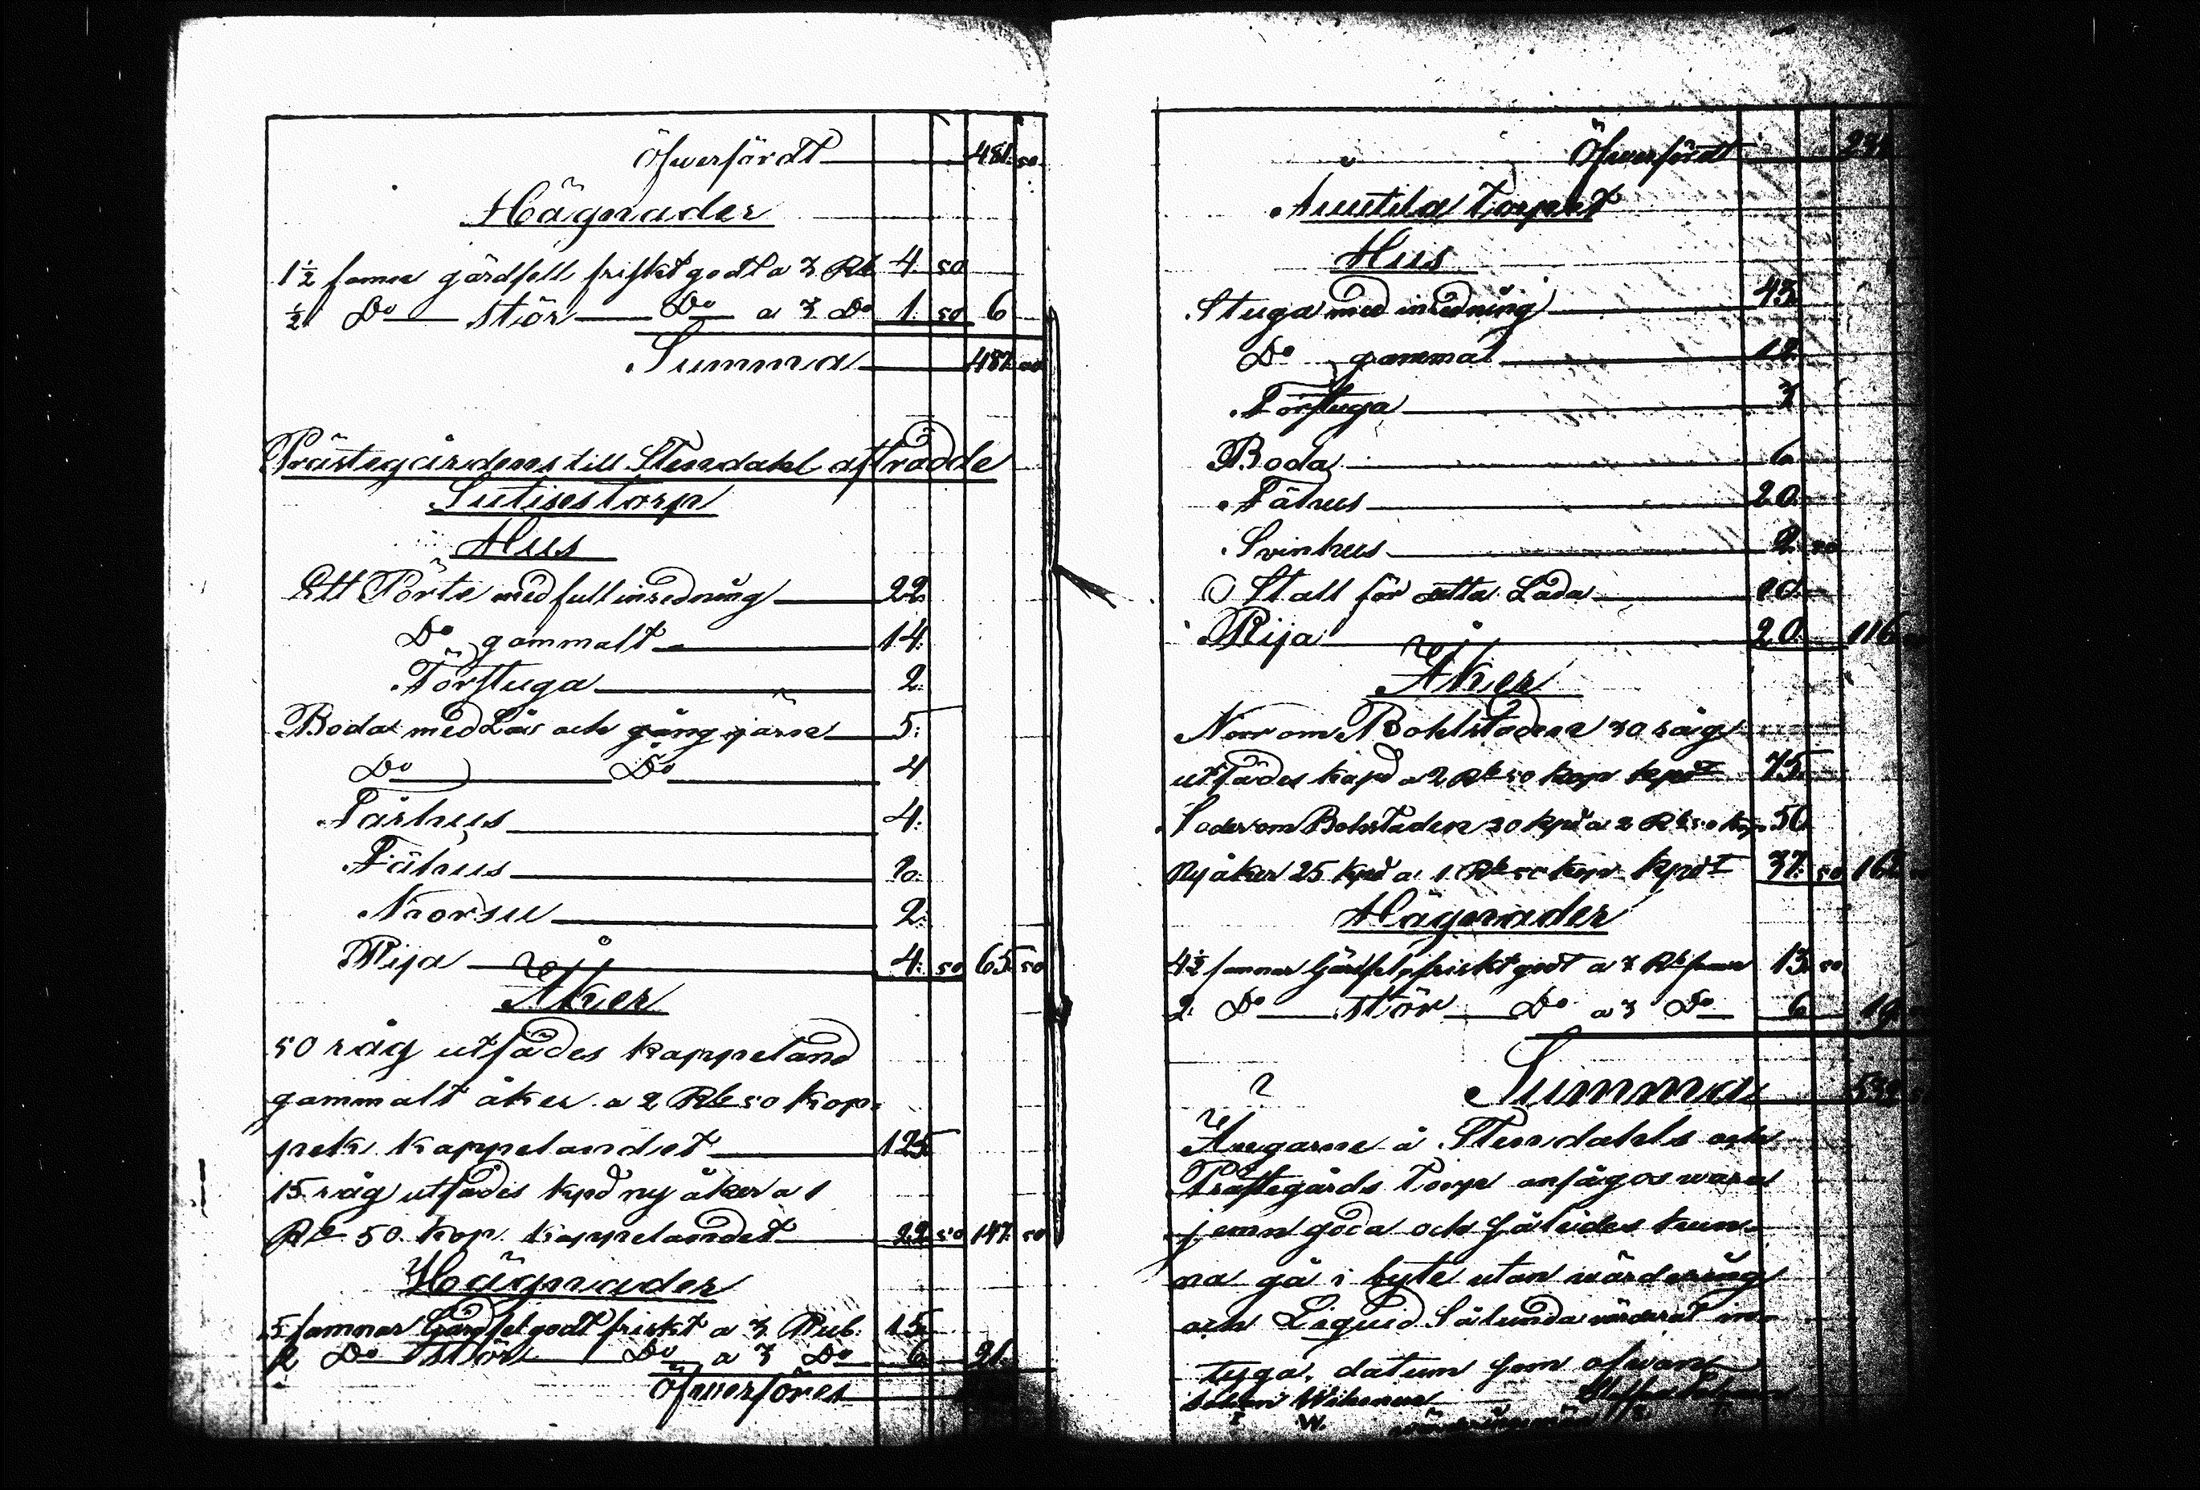 Öfwerfördt 481. 50.
Hägnader
1½ famn gärdsell friskt godt a 3 Rbl 4. 50
½ Do stör Do a 3 Do 1. 50 6
Summa 487. 00
Prästegårdens till Stendahl afträdde
Sutisestorp
Hus
Ett Pörte med full inredning 22.
Do gammalt 14.
Förstuga 2.
Boda med Lås och gång järn 5.
Do Do 4
Fårhus 4.
Fähus
Norsu 2.
Rija 4. 50 65. 50
Åker
50 råg utsädes kappeland
gammalt åker a 2 Rbl 50 kop:
pek kappelandet 125
15 råg utsädes kpd ny åker a 1
Rbl 50 kop. kappelandet 22 50 147. 50
Hägnader
5 famnar Gärdsel godt friskt a 3 Rub. 15.
2 Do Stör Do a 3 Do 6. 21.
Öfwerföres
Öfwerfördt
Torpet
Hus
Stuga med inredning 43.
Do gammal 12.
Förstuga 3
Boda 6
Fähus 20.
Svinhus 2. 50
Stall för åtta Lada 10.
Rija 20. 116
Åker
Norr om Bohlstaden 30 råg
utsädes kapd a 2 Rbl 50 kop kpdt 75.
Söder om Bohlstaden 20 kpd a 2 Rbl 50 kop 50
Ny åker 25 kpd a 1 Rbl 50 kop kpdt 37. 50 162
Hägnader
4½ famnar Gärdsel friskt godt a 3 Rbl famn 13. 50
2 Do stör Do a 3 Do 6 19
Summa 532
Ängarne å Stendahls och
Prästegårds Torp ansågos wara
jemn goda och således kun-
na gå i byte utan värdering
och Liquid Sålunda värderat in-
tyga, datum som ofwan
Johan Wikman
W.